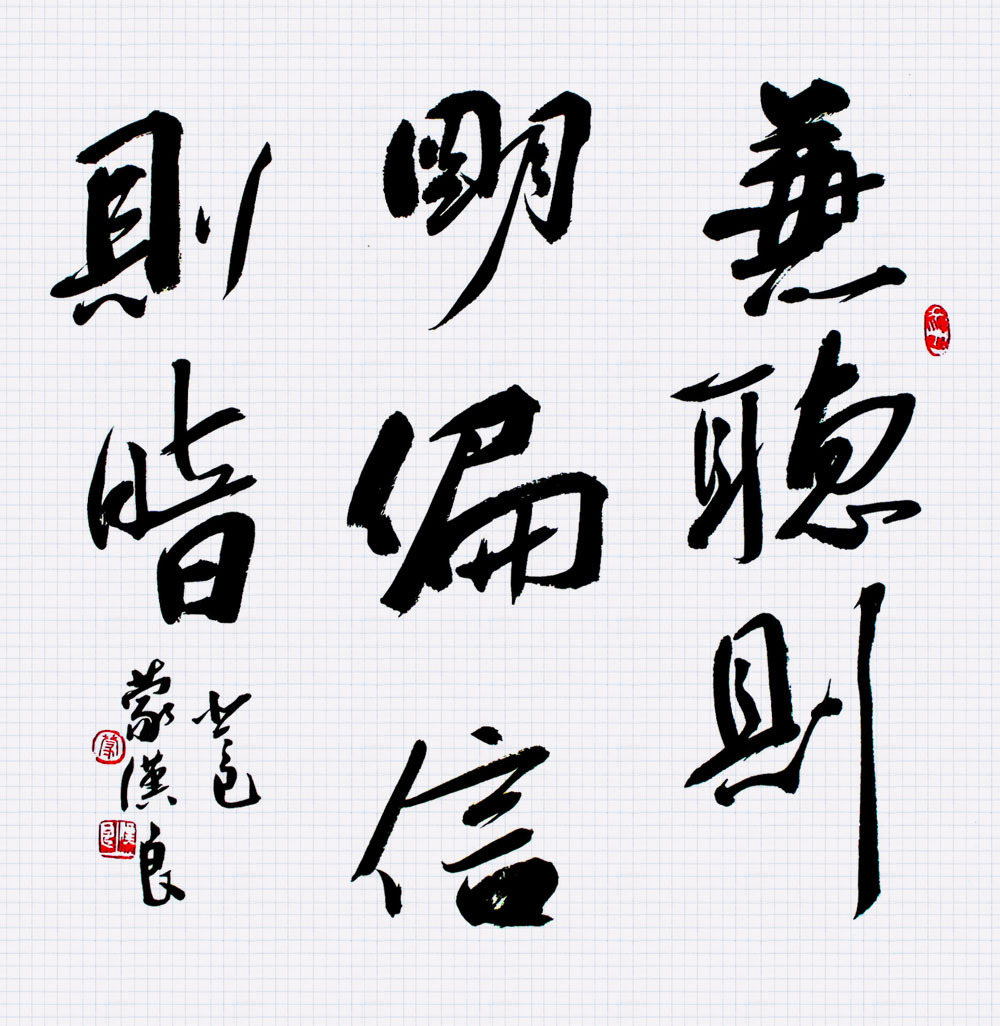 兼聽則
明偏信
則暗
蒙漢良